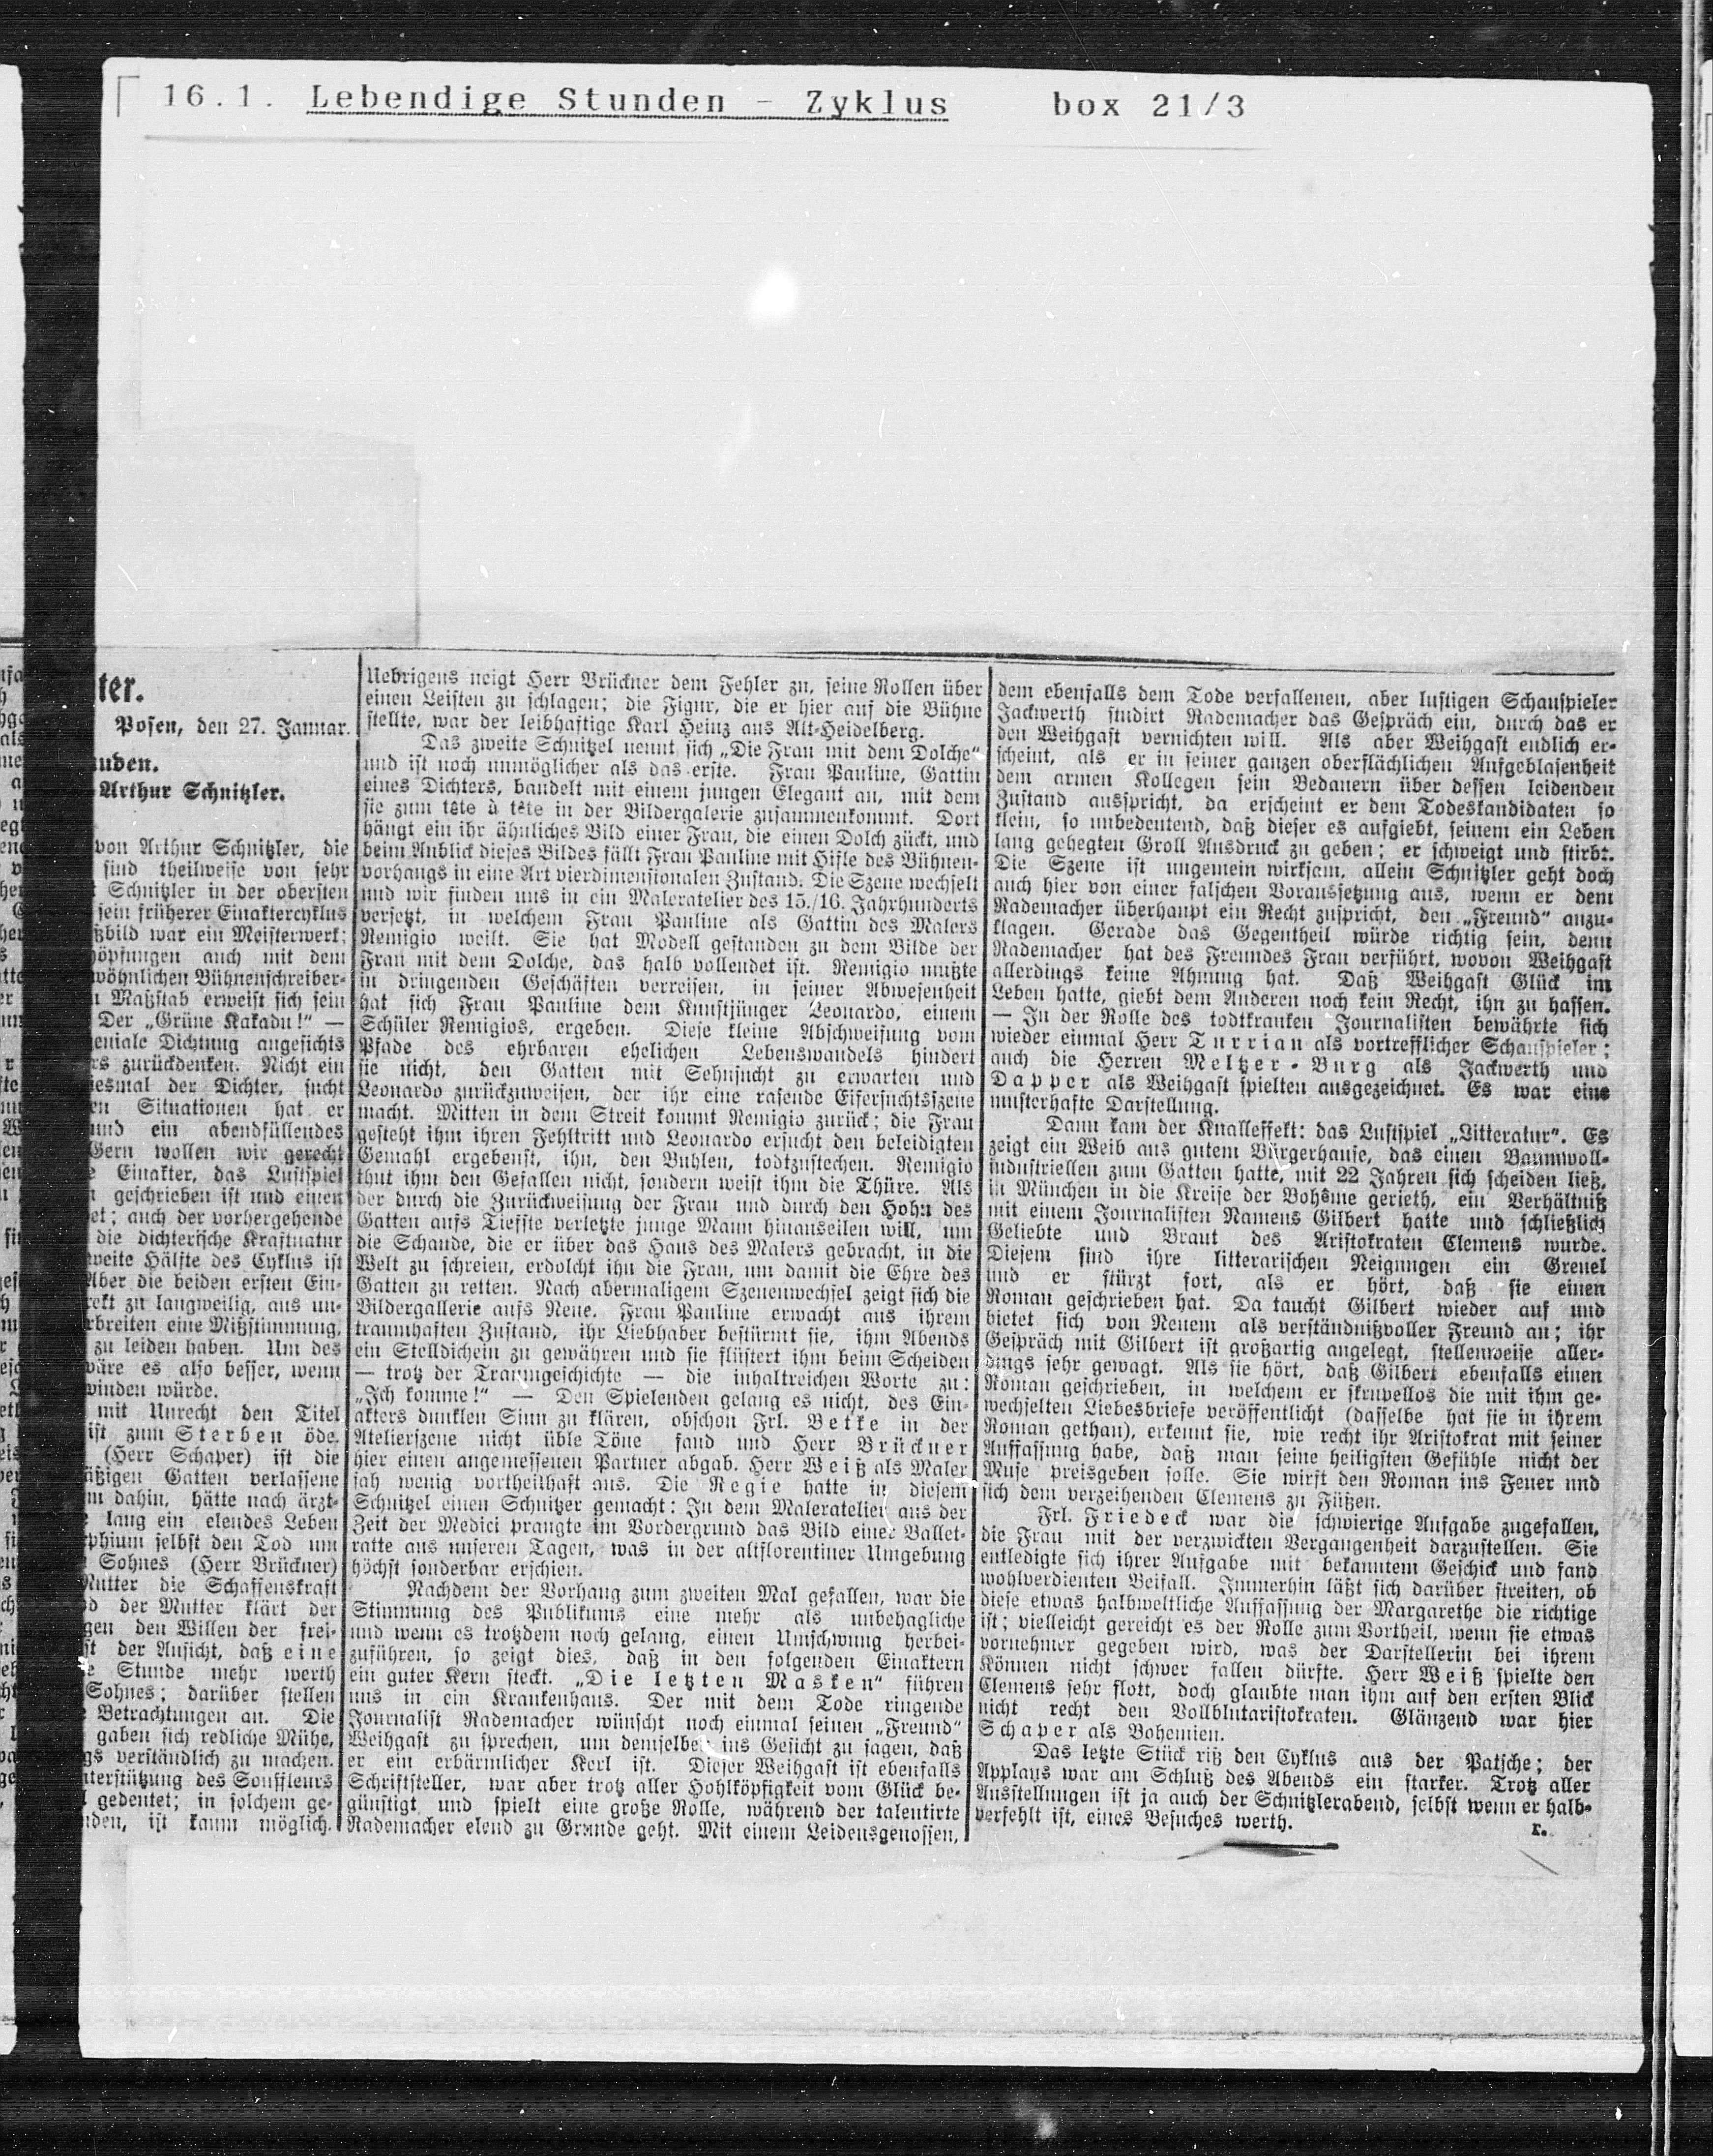 16.1. Lebendige Stunden - Zyklus box 21/3
ter.
Posen, den 27. Januar.
nden.
Arthur Schnitzler.
von Arthur Schnitzler, die
sind theilweise von sehr
Schnitzler in der obersten
sein früherer Einaktercyklus
ßbild war ein Meisterwerk;
höpfungen auch mit dem
wöhnlichen Bühnenschreiber-
Maßstab erweist sich sein
Der „Grüne Kakadu!" —
geniale Dichtung angesichts
rs zurückdenken. Nicht ein
iesmal der Dichter, sucht
en Situationen hat er
und ein abendfüllendes
Gern wollen wir gerecht
e Einakter, das Lustspiel
n geschrieben ist und einen
et; auch der vorhergehende
die dichterische Kraftnatur
weite Hälfte des Cyklus ist
Aber die beiden ersten Ein-
rekt zu langweilig, aus un-
rbreiten eine Mißstimmung,
zu leiden haben. Um des
wäre es also besser, wenn
winden würde.
mit Unrecht den Titel
ist zum Sterben öde.
(Herr Schaper) ist die
äßigen Gatten verlassene
m dahin, hätte nach ärzt-
e lang ein elendes Leben
rphium selbst den Tod um
Sohnes (Herr Brückner)
Mutter die Schaffenskraft
d der Mutter klärt der
gen den Willen der frei-
st der Ansicht, daß eine
e Stunde mehr werth
Sohnes; darüber stellen
Betrachtungen an. Die
gaben sich redliche Mühe,
gs verständlich zu machen.
nterstützung des Souffleurs
gedeutet; in solchem ge-
nden, ist kaum möglich.
Uebrigens neigt Herr Brückner dem Fehler zu, seine Rollen über
einen Leisten zu schlagen; die Figur, die er hier auf die Bühne
stellte, war der leibhaftige Karl Heinz aus Alt-Heidelberg.
Das zweite Schnitzel nennt sich „Die Frau mit dem Dolche"
und ist noch unmöglicher als das erste. Frau Pauline, Gattin
eines Dichters, bandelt mit einem jungen Elegant an, mit dem
sie zum tête à tête in der Bildergalerie zusammenkommt. Dort
hängt ein ihr ähnliches Bild einer Frau, die einen Dolch zückt, und
beim Anblick dieses Bildes fällt Frau Pauline mit Hifle des Bühnen-
vorhangs in eine Art vierdimensionalen Zustand. Die Szene wechselt
und wir finden uns in ein Maleratelier des 15./16. Jahrhunderts
versetzt, in welchem Frau Pauline als Gattin des Malers
Remigio weilt. Sie hat Modell gestanden zu dem Bilde der
Frau mit dem Dolche, das halb vollendet ist. Remigio mußte
in dringenden Geschäften verreisen, in seiner Abwesenheit
hat sich Frau Pauline dem Kunstjünger Leonardo, einem
Schüler Remigios, ergeben. Diese kleine Abschweifung vom
Pfade des ehrbaren ehelichen Lebenswandels hindert
sie nicht, den Gatten mit Sehnsucht zu erwarten und
Leonardo zurückzuweisen, der ihr eine rasende Eifersuchtsszene
macht. Mitten in dem Streit kommt Remigio zurück; die Frau
gesteht ihm ihren Fehltritt und Leonardo ersucht den beleidigten
Gemahl ergebenst, ihn, den Buhlen, todtzustechen. Remigio
thut ihm den Gefallen nicht, sondern weist ihm die Thüre. Als
der durch die Zurückweisung der Frau und durch den Hohn des
Gatten aufs Tiefste verletzte junge Mann hinauseilen will, um
die Schande, die er über das Haus des Malers gebracht, in die
Welt zu schreien, erdolcht ihn die Frau, um damit die Ehre des
Gatten zu retten. Nach abermaligem Szenenwechsel zeigt sich die
Bildergallerie aufs Neue. Frau Pauline erwacht aus ihrem
traumhaften Zustand, ihr Liebhaber bestürmt sie, ihm Abends
ein Stelldichein zu gewähren und sie flüstert ihm beim Scheiden
— trotz der Traumgeschichte — die inhaltreichen Worte zu:
„Ich komme!" — Den Spielenden gelang es nicht, des Ein-
akters dunklen Sinn zu klären, obschon Frl. Betke in der
Atelierszene nicht üble Töne fand und Herr Brückner
hier einen angemessenen Partner abgab. Herr Weiß als Maler
sah wenig vortheilhaft aus. Die Regie hatte in diesem
Schnitzel einen Schnitzer gemacht: In dem Maleratelier aus der
Zeit der Medici prangte im Vordergrund das Bild einer Ballet-
ratte aus unseren Tagen, was in der altflorentiner Umgebung
höchst sonderbar erschien.
Nachdem der Vorhang zum zweiten Mal gefallen, war die
Stimmung des Publikums eine mehr als unbehagliche
und wenn es trotzdem noch gelang, einen Umschwung herbei-
zuführen, so zeigt dies, daß in den folgenden Einaktern
ein guter Kern steckt. „Die letzten Masken" führen
uns in ein Krankenhaus. Der mit dem Tode ringende
Journalist Rademacher wünscht noch einmal seinen „Freund"
Weihgast zu sprechen, um demselben ins Gesicht zu sagen, daß
er ein erbärmlicher Kerl ist. Dieser Weihgast ist ebenfalls
Schriftsteller, war aber trotz aller Hohlköpfigkeit vom Glück be-
günstigt und spielt eine große Rolle, während der talentirte
Rademacher elend zu Grunde geht. Mit einem Leidensgenossen,
dem ebenfalls dem Tode verfallenen, aber lustigen Schauspieler
Jackwerth studirt Rademacher das Gespräch ein, durch das er
den Weihgast vernichten will. Als aber Weihgast endlich er-
scheint, als er in seiner ganzen oberflächlichen Aufgeblasenheit
dem armen Kollegen sein Bedauern über dessen leidenden
Zustand ausspricht, da erscheint er dem Todeskandidaten so
klein, so unbedeutend, daß dieser es aufgiebt, seinem ein Leben
lang gehegten Groll Ausdruck zu geben; er schweigt und stirbt.
Die Szene ist ungemein wirksam, allein Schnitzler geht doch
auch hier von einer falschen Voraussetzung aus, wenn er dem
Rademacher überhaupt ein Recht zuspricht, den „Freund" anzu-
klagen. Gerade das Gegentheil würde richtig sein, denn
Rademacher hat des Freundes Frau verführt, wovon Weihgast
allerdings keine Ahnung hat. Daß Weihgast Glück im
Leben hatte, giebt dem Anderen noch kein Recht, ihn zu hassen.
— In der Rolle des todtkranken Journalisten bewährte sich
wieder einmal Herr Turrian als vortrefflicher Schauspieler;
auch die Herren Meltzer-Burg als Jackwerth und
Dapper als Weihgast spielten ausgezeichnet. Es war eine
musterhafte Darstellung.
Dann kam der Knalleffekt: das Lustspiel „Litteratur". Es
zeigt ein Weib aus gutem Bürgerhause, das einen Baumwoll-
industriellen zum Gatten hatte, mit 22 Jahren sich scheiden ließ,
in München in die Kreise der Bohème gerieth, ein Verhältniß
mit einem Journalisten Namens Gilbert hatte und schließlich
Geliebte und Braut des Aristokraten Clemens wurde.
Diesem sind ihre litterarischen Neigungen ein Greuel
und er stürzt fort, als er hört, daß sie einen
Roman geschrieben hat. Da taucht Gilbert wieder auf und
bietet sich von Neuem als verständnißvoller Freund an; ihr
Gespräch mit Gilbert ist großartig angelegt, stellenweise aller-
dings sehr gewagt. Als sie hört, daß Gilbert ebenfalls einen
Roman geschrieben, in welchem er skrupellos die mit ihm ge-
wechselten Liebesbriefe veröffentlicht (dasselbe hat sie in ihrem
Roman gethan), erkennt sie, wie recht ihr Aristokrat mit seiner
Auffassung habe, daß man seine heiligsten Gefühle nicht der
Muse preisgeben solle. Sie wirft den Roman ins Feuer und
sich dem verzeihenden Clemens zu Füßen.
Frl. Friedeck war die schwierige Aufgabe zugefallen,
die Frau mit der verzwickten Vergangenheit darzustellen. Sie
entledigte sich ihrer Aufgabe mit bekanntem Geschick und fand
wohlverdienten Beifall. Immerhin läßt sich darüber streiten, ob
diese etwas halbweltliche Auffassung der Margarethe die richtige
ist; vielleicht gereicht es der Rolle zum Vortheil, wenn sie etwas
vornehmer gegeben wird, was der Darstellerin bei ihrem
Können nicht schwer fallen dürfte. Herr Weiß spielte den
Clemens sehr flott, doch glaubte man ihm auf den ersten Blick
nicht recht den Vollblutaristokraten. Glänzend war hier
Schaper als Bohemien.
Das letzte Stück riß den Cyklus aus der Patsche; der
Applaus war am Schluß des Abends ein starker. Trotz aller
Ausstellungen ist ja auch der Schnitzlerabend, selbst wenn er halb-
verfehlt ist, eines Besuches werth.
r.